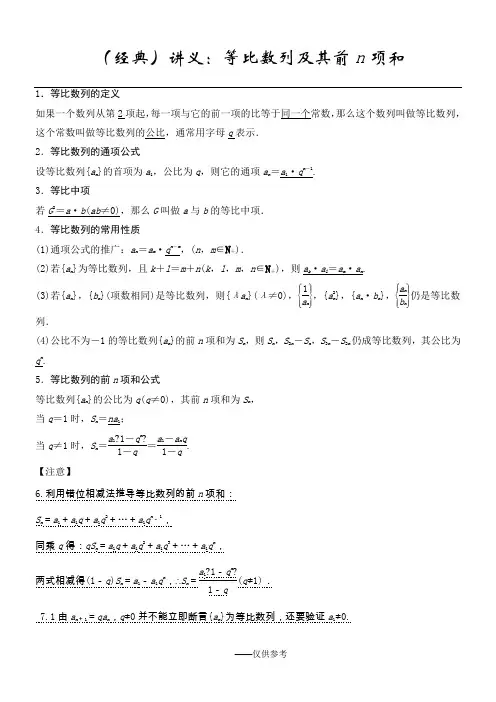 （经典）讲义：等比数列及其前n项和
1．等比数列的定义
如果一个数列从第2项起，每一项与它的前一项的比等于同一个常数，那么这个数列叫做等比数列，
这个常数叫做等比数列的公比，通常用字母q表示．
2．等比数列的通项公式
设等比数列{aₙ}的首项为a₁，公比为q，则它的通项aₙ＝a₁·qⁿ⁻¹.
3．等比中项
若G²＝a·b(ab≠0)，那么G叫做a与b的等比中项．
4．等比数列的常用性质
(1)通项公式的推广：aₙ＝aₘ·qⁿ⁻ᵐ，(n，m∈N₊)．
(2)若{aₙ}为等比数列，且k＋l＝m＋n(k，l，m，n∈N₊)，则aₖ·aₗ＝aₘ·aₙ.
(3)若{aₙ}，{bₙ}(项数相同)是等比数列，则{λaₙ}(λ≠0)，{1/aₙ}，{aₙ²}，{aₙ·bₙ}，{aₙ/bₙ}仍是等比数
列．
(4)公比不为－1的等比数列{aₙ}的前n项和为Sₙ，则Sₙ，S₂ₙ－Sₙ，S₃ₙ－S₂ₙ仍成等比数列，其公比为
qⁿ.
5．等比数列的前n项和公式
等比数列{aₙ}的公比为q(q≠0)，其前n项和为Sₙ，
当q＝1时，Sₙ＝na₁；
当q≠1时，Sₙ＝a₁?1－qⁿ?/1－q＝a₁－aₙq/1－q.
【注意】
6.利用错位相减法推导等比数列的前n项和：
Sₙ＝a₁＋a₁q＋a₁q²＋…＋a₁qⁿ⁻¹，
同乘q得：qSₙ＝a₁q＋a₁q²＋a₁q³＋…＋a₁qⁿ，
两式相减得(1－q)Sₙ＝a₁－a₁qⁿ，∴Sₙ＝a₁?1－qⁿ?/1－q(q≠1)．
7.1由aₙ₊₁＝qaₙ，q≠0并不能立即断言{aₙ}为等比数列，还要验证a₁≠0.
——仅供参考